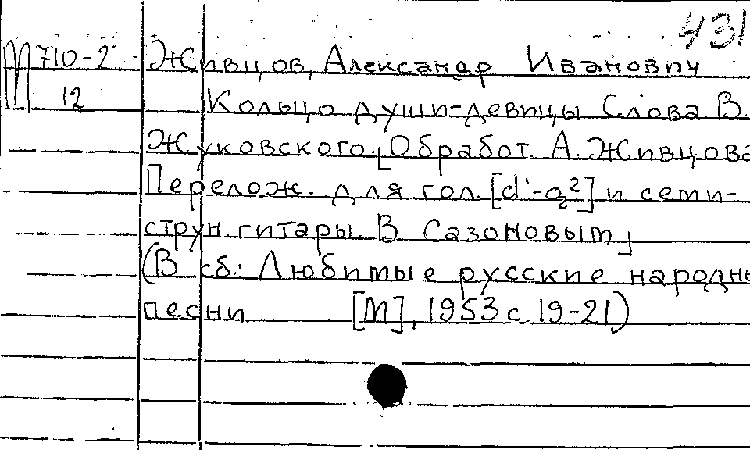 431
М 710-2 Живцов, Александр Иванович
12 Кольцо души-девицы Слова В.
Жуковского. [Обработ. А. Живцова
Перелож. для гол. [d¹-g²] и семи-
струн. гитары В. Сазоновым]
(В сб: Любимые русские народны
песни [М], 1953 с. 19-21)